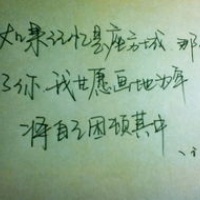 如果记忆是座方城 那
了你 我甘愿画地为牢
将自己困顿其中